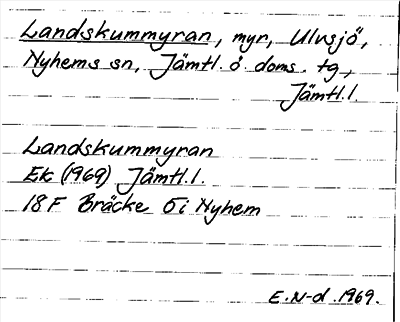 Landskummyran, myr, Ulvsjö,
Nyhems sn, Jämtl. ö. doms. tg,
Jämtl.l.
Landskummyran
Ek (1969) Jämtl.l.
18 F Bräcke 5 i Nyhem
E. N-d. 1969.